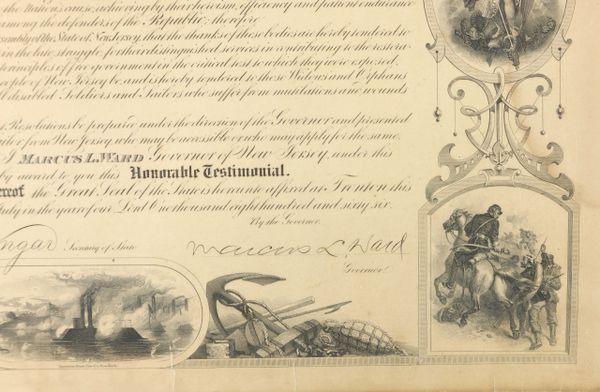 the Nation's cause, achieving by their heroism, efficiency and patient endurance
among the defenders of the Republic; therefore
Assembly of the State of New Jersey, that the thanks of these bodies are hereby tendered to
in the late struggle, for their distinguished services in contributing to the restora-
principles of free government in the critical test to which they were exposed.
people of New Jersey be, and is hereby tendered to those Widows and Orphans
disabled Soldiers and Sailors who suffer from mutilations and wounds
Resolutions be prepared under the direction of the Governor and presented
from New Jersey, who may be accessible or who may apply for the same.
I MARCUS L. WARD Governor of New Jersey, under this
by award to you this Honorable Testimonial.
the Great Seal of the State is hereunto affixed at Trenton this
day in the year of our Lord One thousand eight hundred and sixty six.
By the Governor.
Secretary of State
Marcus L. Ward
Governor